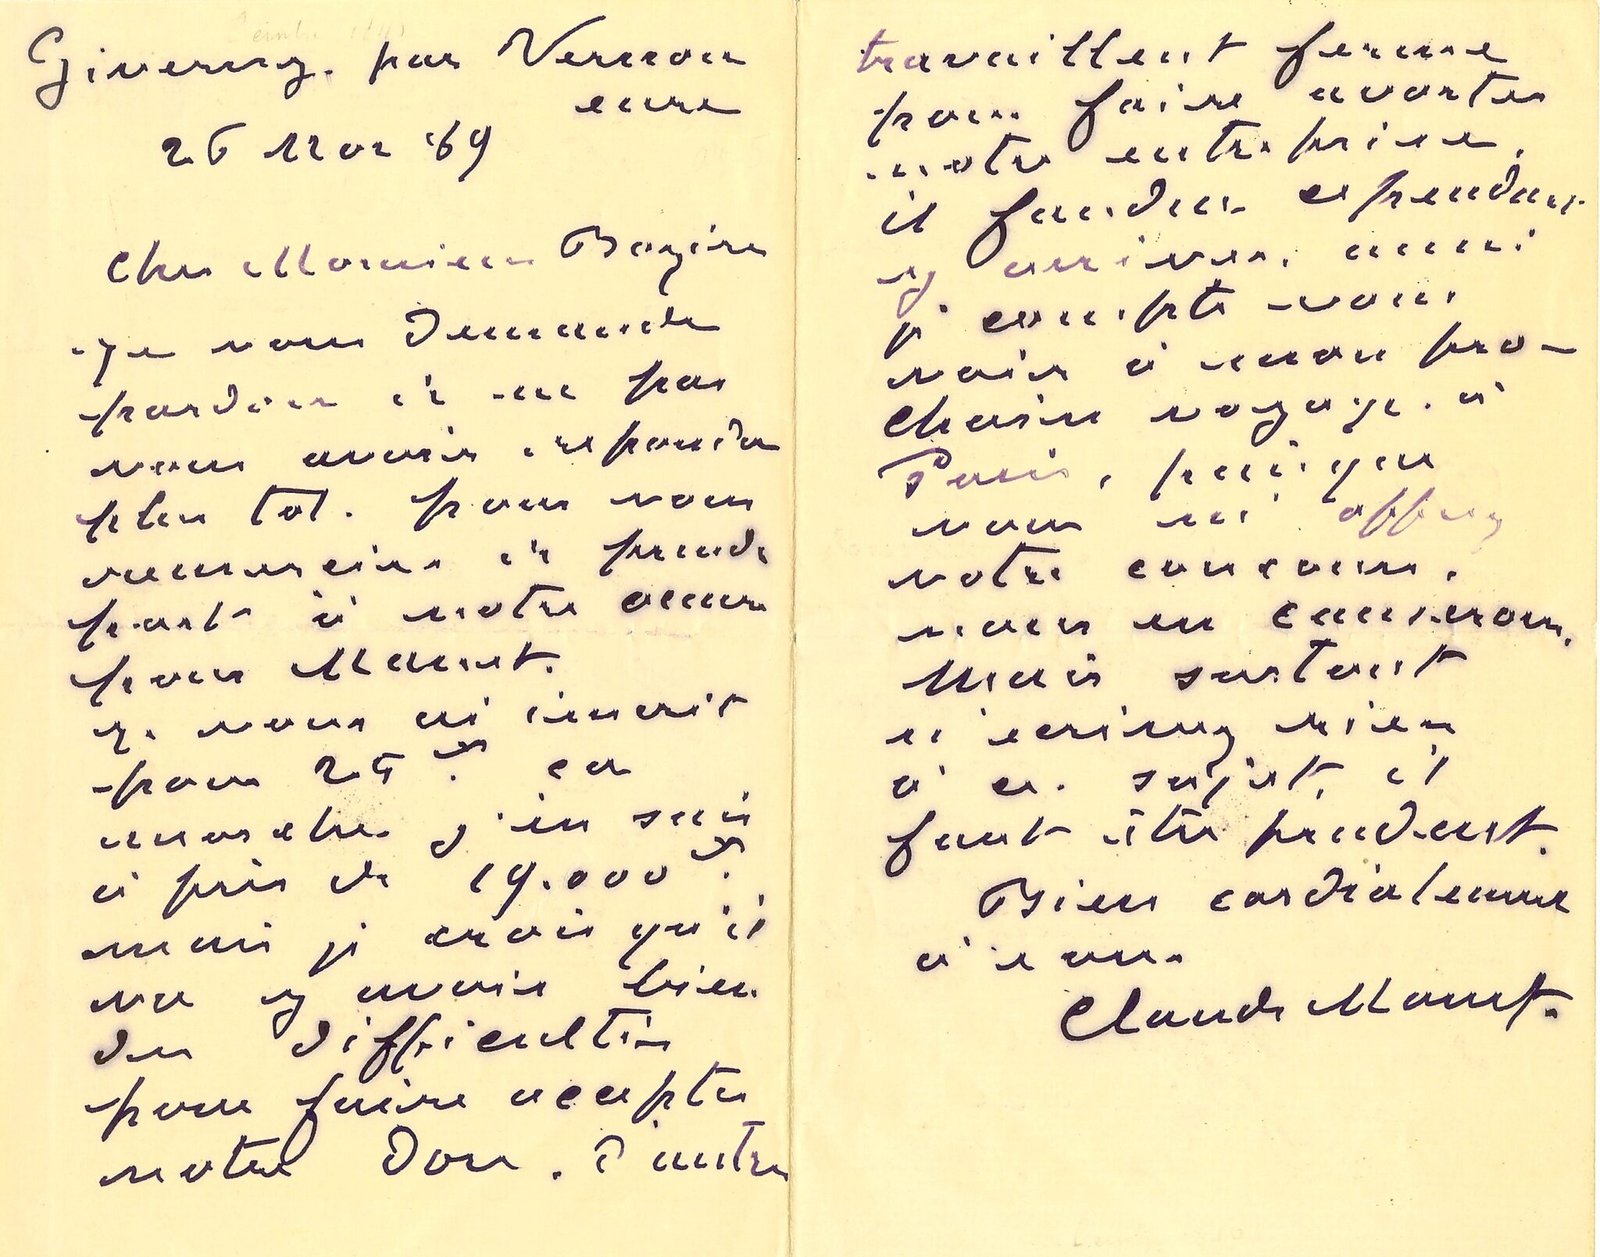 Giverny. par Vernon
eure
26 Nov 89
Cher Monsieur Bazire
Je vous demande
pardon de ne pas
vous avoir repondu
plus tot. pour vous
remercier de prendre
part à notre œuvre
pour Manet.
je vous ai inscrit
pour 25 f. ca
marche j'en suis
à près de 19.000 f.
mais je crois qu'il
va y avoir bien
des difficultés
pour faire accepter
notre don. d'autres
travaillent ferme
pour faire avorter
notre entreprise.
il faudra cependant
y arriver. aussi
je compte vous
voir à mon pro-
chain voyage. à
Paris, puisque
vous m'offrez
votre concours.
nous en causerons.
Mais surtout
n'ecrivez rien
à ce sujet, il
faut être prudent.
Bien cordialement
à vous.
Claude Monet.